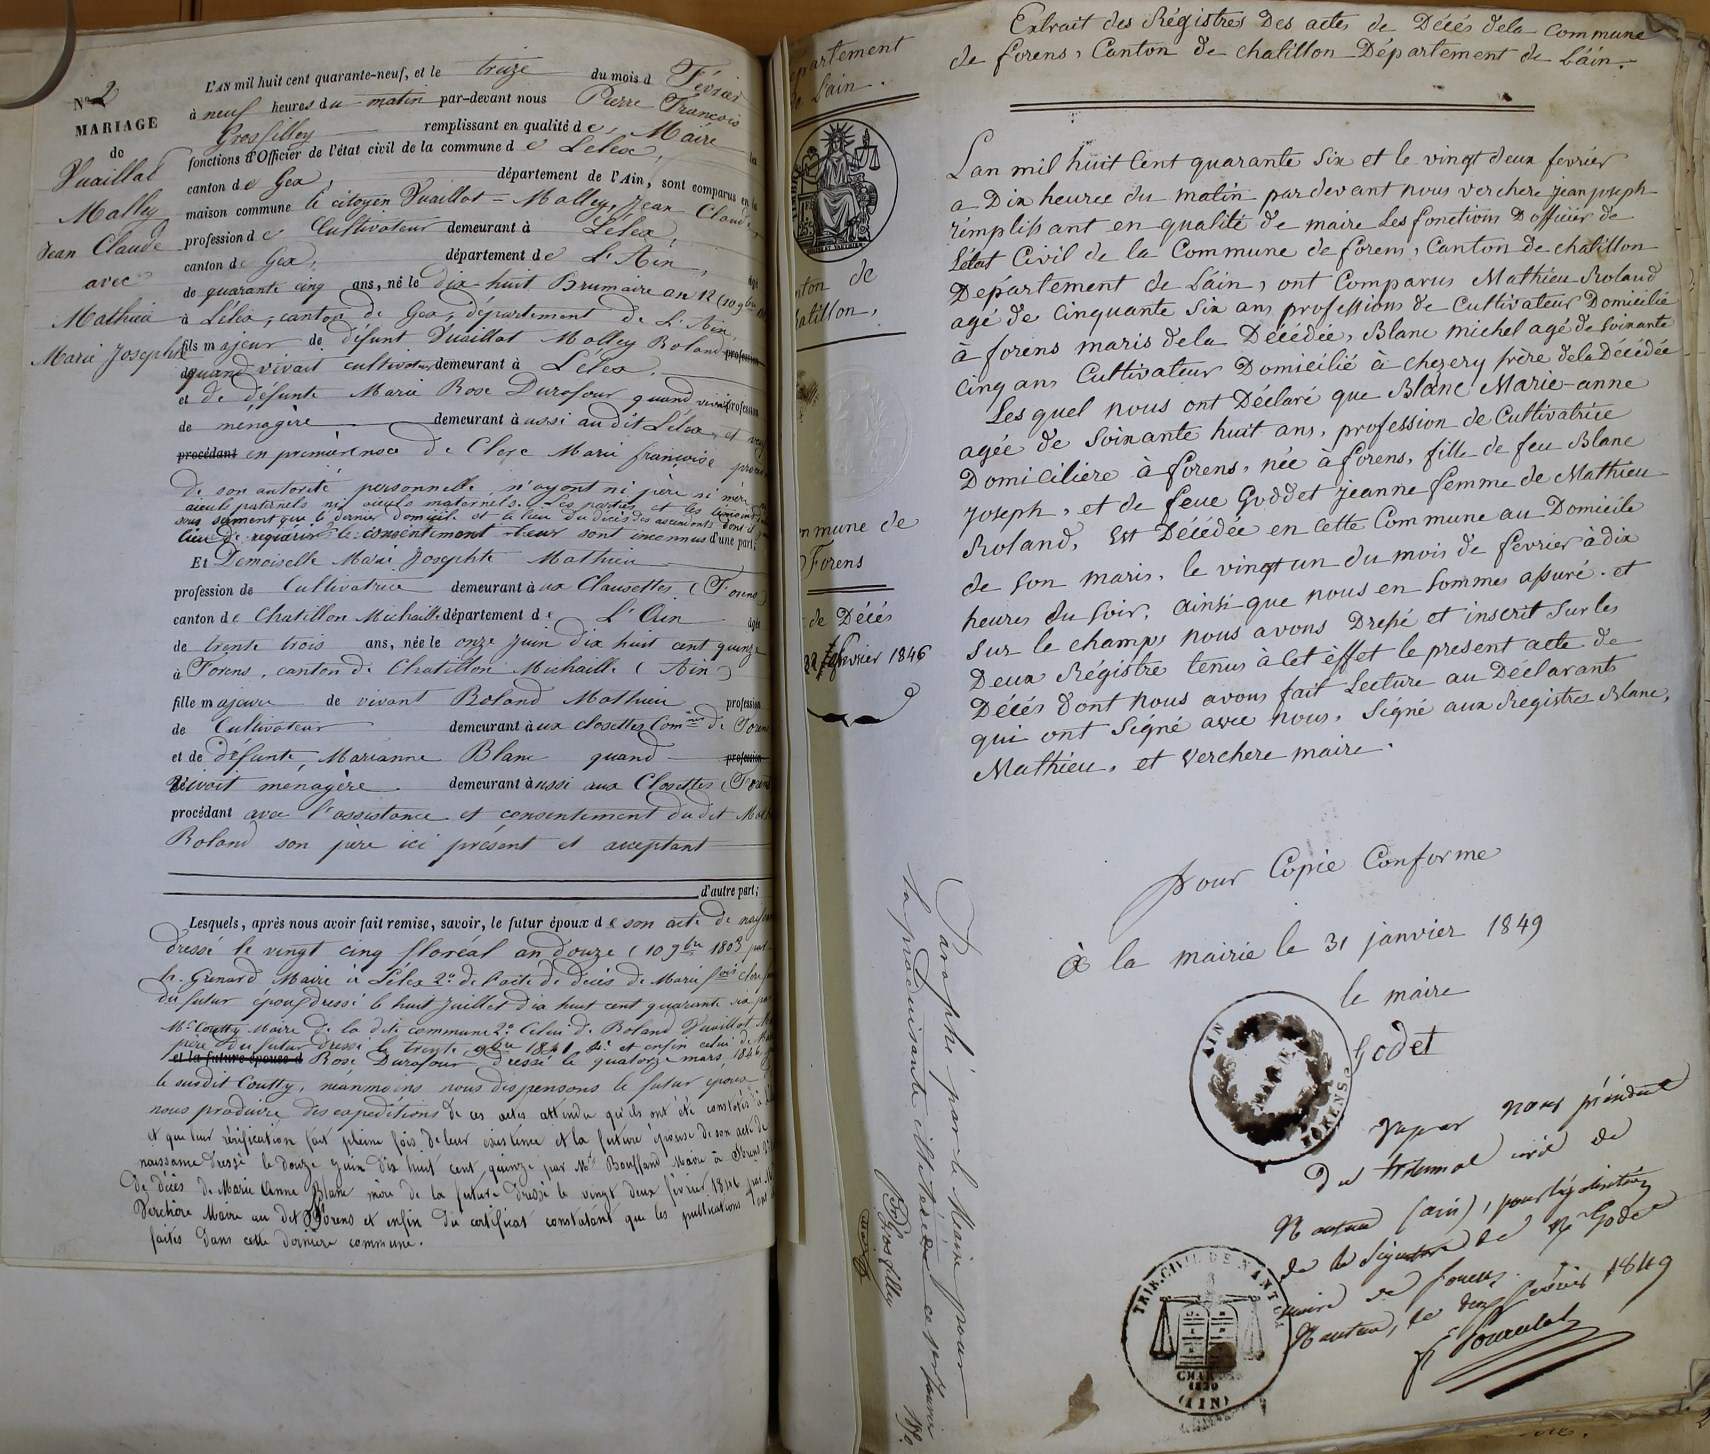 N° 2
MARIAGE
de
Vuaillat
Molley
Jean Claude
avec
Mathieu
Marie Josephte
L'AN mil huit cent quarante-neuf, et le treize du mois d Février
à neuf heures du matin par-devant nous Pierre François
Grosfilley remplissant en qualité de Maire les
fonctions d'Officier de l'état civil de la commune de Lélex,
canton de Gex, département de l'Ain, sont comparus en la
maison commune le citoyen Vuaillat-Molley, Jean Claude,
profession de Cultivateur demeurant à Lélex,
canton de Gex, département de L'Ain, âgé
de quarante cinq ans, né le dix-huit Brumaire an 12 (10 9bre
à Lélex, canton de Gex, département de L'Ain,
fils majeur de défunt Vuaillat Molley Roland profession
quand vivait cultivateur demeurant à Lélex.
et de défunte Marie Rose Durofour quand vivait profession
de ménagère demeurant à ussi au dit Lélex, et veuf
procédant en premières noces de Clerc Marie françoise
de son autorité personnelle, n'ayant ni père ni mère
aieuls paternels ni aieuls maternels. Les parties et les témoins
sous serment que le dernier domicile et le lieu du décès des ascendants dont il
lieu de requérir le consentement leur sont inconnus d'une part;
Et Demoiselle Marie Josephte Mathieu
profession de Cultivatrice demeurant à ux Clausettes (Forens)
canton de Chatillon Michaille département de L'Ain âgée
de trente trois ans, née le onze Juin dix huit cent quinze
à Forens, canton de Chatillon Michaille (Ain)
fille majeure de vivant Roland Mathieu profession
de Cultivateur demeurant à ux closettes Comne de Forens
et de défunte, Marianne Blanc quand profession
vivait ménagère demeurant à ussi aux Closettes (Forens
procédant avec l'assistance et consentement dudit Mathieu
Roland son père ici présent et acceptant
d'autre part;
Lesquels, après nous avoir fait remise, savoir, le futur époux de son acte de
dressé le vingt cinq floréal an douze (10 9bre 1803 par
h. Grenard Maire à Lélex 2° de l'acte de décès de Marie fois clerc
du futur époux dressé le huit Juillet dix huit cent quarante six
Mr Coutty Maire de la dite commune 2° Celui de Roland Vuaillat
père du futur dressé le trente 9bre 1841 et enfin celui de
et la future épouse d Rose Durofour dressé le quatorze mars 1846
le susdit Coutty, néanmoins nous dispensons le futur époux
nous produire des expéditions de ces actes attendu qu'ils ont été constatés à
et que leur vérification fait pleine fois de leur existence et la future épouse de son acte de
naissance dressé le douze Juin dix huit cent quinze par Mr Bouffand Maire à Forens
de décès de Marie Anne Blanc mère de la future dressé le vingt deux février 1846 par
Verchère Maire au dit Forens et enfin du certificat constatant que les publications
faites dans cette dernière commune.
Département
de Lain.
Canton de
Chatillon,
Commune de
Forens
de Décès
22 février 1846
Extrait des Régistres Des actes de Décés dela Commune
de forens, Canton de chatillon Département de Láin.
Lan mil huit Cent quarante Six et le vingt deux fevrier
a Dix heures du matin pardevant nous verchere jean joseph
remplissant en qualité de maire Les fonctions D'officier de
L'état Civil de la Commune de forens, Canton de chatillon
Département de Láin, ont Comparus Mathieu Roland
agé de Cinquante Six ans professions de Cultivateur Domicilié
à forens maris dela Décédée, Blanc michel agé de Soixante
cinq ans Cultivateur Domicilié à chezery frère dela Décédée
Les quel nous ont Déclaré que Blanc Marie-anne
agée de Soixante huit ans, profession de Cultivatrice
Domicilière à forens, née à forens, fille de feu Blanc
joseph, et de feue Goddet jeanne femme de Mathieu
Roland, Est Décédée en Cette Commune au Domicile
de Son maris, le vingt un du mois de fevrier à dix
heures du Soir, ainsi que nous en Sommes assuré. et
Sur le champs nous avons Dressé et inscrit Sur les
Deux Régistre tenus à Cet èffet le present acte de
Décés dont nous avons fait Lecture au Déclarants
qui ont Signé avec nous, Signé aux Registres Blanc,
Mathieu, et Verchere maire.
pour Copie Conforme
à la mairie le 31 janvier 1849
le maire
Godet
AIN
MAIRIE DE
FORENS
Vu par nous président
du tribunal civil de
Nantua (ain), pour légalisation
de la signature de Mr Godet
maire de forens.
Nantua, le deux février 1849
TRIB. CIVIL DE NANTUA
CHARTE
1830
(AIN)
Paraphé par le Maire pour
la produisante illitérée ce
P Grosfilley